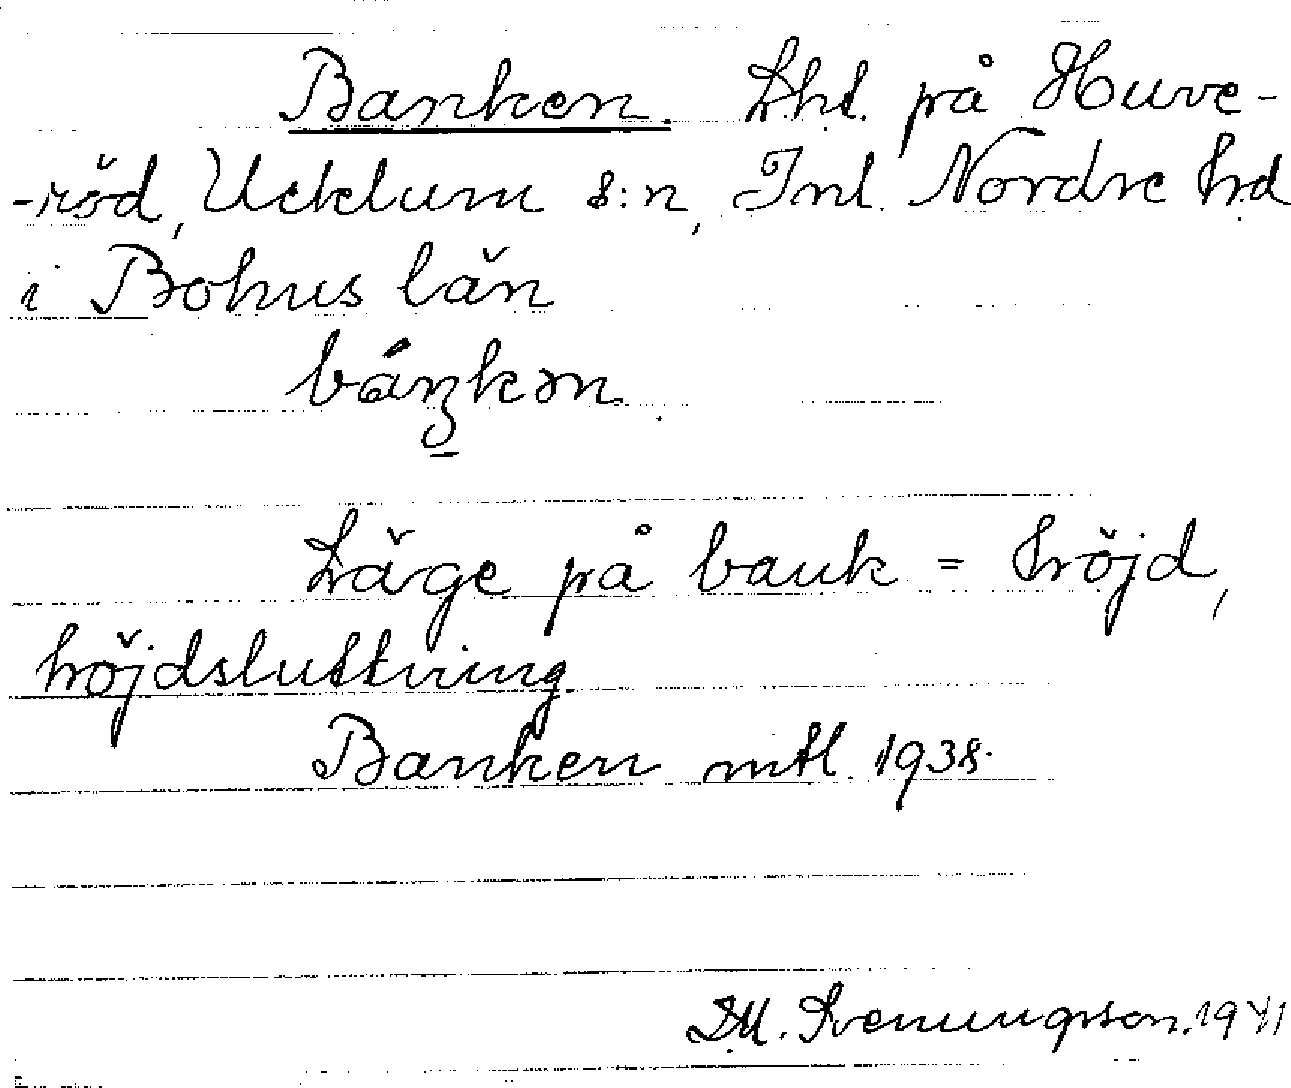 Banken. Lht. på Huve-
-röd, Ucklum s:n, Inl. Nordre hd
i Bohus län
báŋkən.
Läge på bank = höjd,
höjdsluttning
Banken mtl 1938.
Svenungsson. 1941